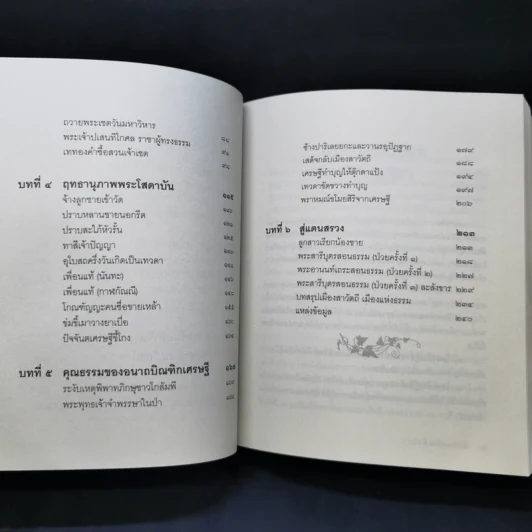 ถวายพระเชตวันมหาวิหาร
พระเจ้าปเสนทิโกศล ราชาผู้ทรงธรรม ๘๘
เททองคำซื้อสวนเจ้าเชต ๙๑
๙๘
บทที่ ๔ ฤทธานุภาพพระโสดาบัน ๑๑๕
จ้างลูกชายเข้าวัด
ปราบหลานชายนอกรีต
ปราบสะใภ้หัวรั้น
ทาสีเจ้าปัญญา
อุโบสถครึ่งวันเกิดเป็นเทวดา
เพื่อนแท้ (นันทะ)
เพื่อนแท้ (กาฬกัณณี)
โกณฑัญญะคนชื่อขายเหล้า
ข่มขี้เมาวางยาเบื่อ
ปัจจันตเศรษฐีขี้โกง
บทที่ ๕ คุณธรรมของอนาถบิณฑิกเศรษฐี ๑๖๗
ระงับเหตุพิพาทภิกษุชาวโกสัมพี
พระพุทธเจ้าจำพรรษาในป่า
ช้างปาริเลยยกะและวานรอุปัฏฐาก ๑๗๙
เสด็จกลับเมืองสาวัตถี ๑๘๘
เศรษฐีทำบุญให้ตุ๊กตาแป้ง ๑๙๔
เทวดาขัดขวางทำบุญ ๑๙๗
พราหมณ์ขโมยสิริจากเศรษฐี ๒๐๖
บทที่ ๖ สู่แดนสรวง ๒๑๓
ลูกสาวเรียกน้องชาย ๒๑๓
พระสารีบุตรสอนธรรม (ป่วยครั้งที่ ๑) ๒๑๘
พระอานนท์เถระสอนธรรม (ป่วยครั้งที่ ๒) ๒๒๗
พระสารีบุตรสอนธรรม (ป่วยครั้งที่ ๓) ละสังขาร ๒๒๙
บทสรุปเมืองสาวัตถี เมืองแห่งธรรม ๒๓๔
แหล่งข้อมูล ๒๔๐